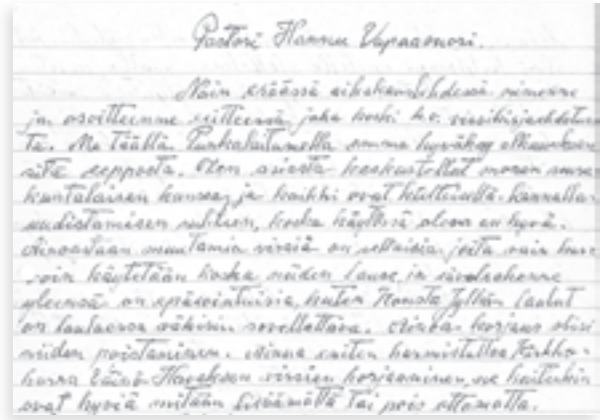 Pastori Hannu Vapaavuori.
Näin eräässä aikakauslehdessä nimenne
ja osoitteenne joka koski k.o. virsikirjaehdotus
ta. Me täällä Punkalaitumella emme hyväksy
sitä Olen asiasta keskustellut monen
kuntalaisen kanssa, ja kaikki ovat kannalla
uudistamisen suhteen, koska käytössä oleva on hyvä.
Ainoastaan muutamia virsiä on sellaisia, joita vain
soin käytetään koska niiden lause ja
yleensä on epäsointuisia, kuten Jylhän laulut
on laulaessa väkisin sovellettava. Ainoa korjaus olisi
niiden poistaminen. Minua eniten Kirkko-
herra Väinö virsien korjaaminen, ne kuitenkin
ovat hyviä mitään lisäämättä tai pois ottamatta.